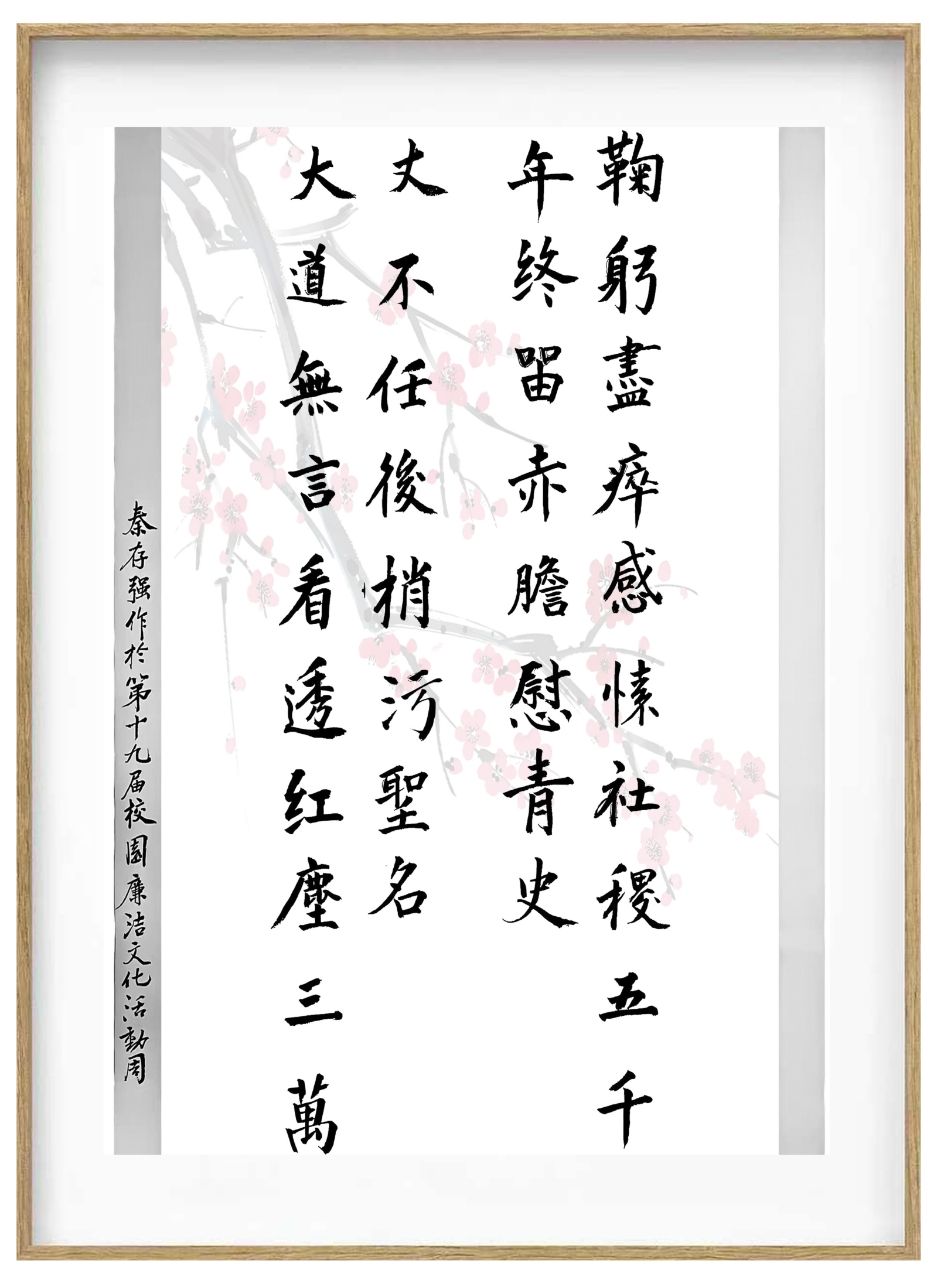 鞠躬盡瘁感愫社稷五千
年终留赤膽慰青史
大道無言看透红塵三萬
丈不任後梢污聖名
秦存强作於第十九届校園廉洁文化活動周